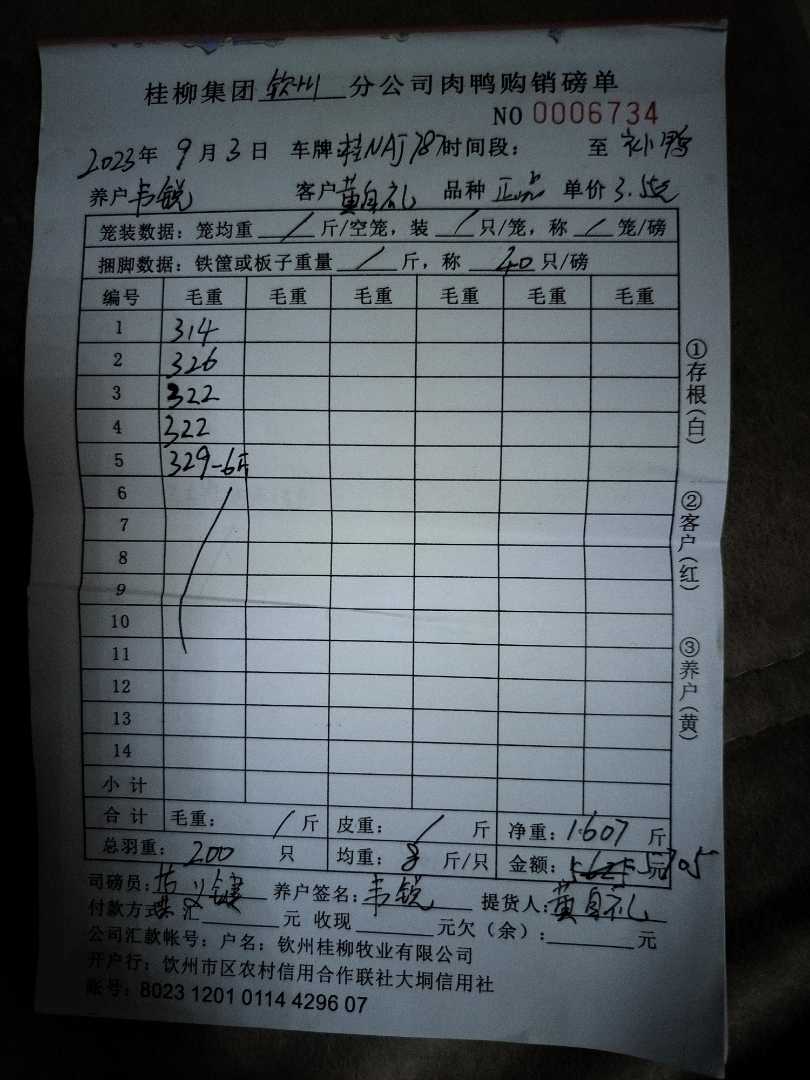 桂柳集团 钦州 分公司肉鸭购销磅单
NO 0006734
2023年 9月3日 车牌 桂NAJ787 时间段: 至 补鸭
养户 韦锐 客户 黄自礼 品种 正品 单价 3.5元
笼装数据:笼均重 / 斤/空笼,装 / 只/笼,称 / 笼/磅
捆脚数据:铁筐或板子重量 / 斤,称 40 只/磅
编号 毛重 毛重 毛重 毛重 毛重 毛重
1 314
2 326
3 322
4 322
5 329-6斤
6
7
8
9
10
11
12
13
14
小计
合计 毛重: / 斤 皮重: / 斤 净重:1607 斤
总羽重: 200 只 均重: 8 斤/只 金额: 5625 元 5705
司磅员: 养户签名: 韦锐 提货人: 黄自礼
付款方式: 汇 元 收现 元欠(余): 元
公司汇款帐号:户名:钦州桂柳牧业有限公司
开户行:钦州市区农村信用合作联社大垌信用社
账号:8023 1201 0114 4296 07
①存根(白)
②客户(红)
③养户(黄)